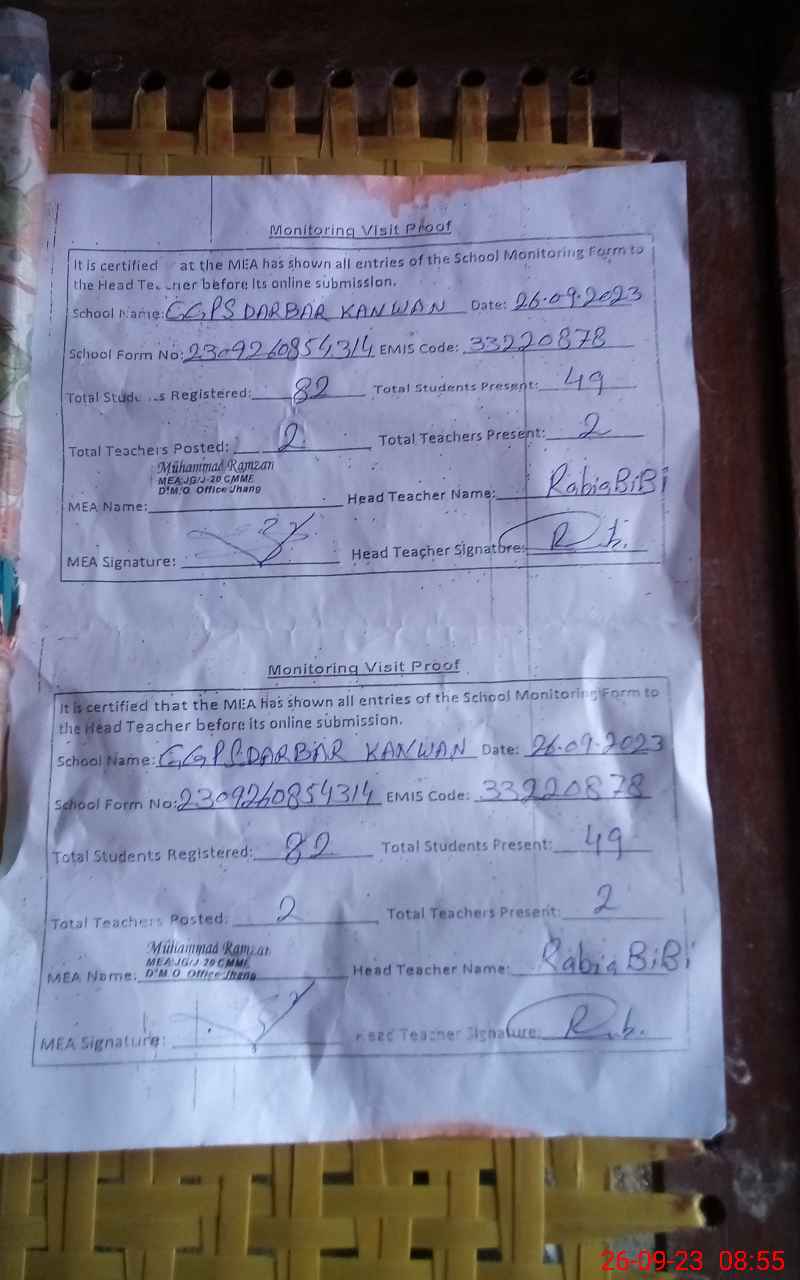 Monitoring Visit Proof
It is certified at the MEA has shown all entries of the School Monitoring Form to
the Head Te ner before its online submission.
School Name: GGPS DARBAR KANWAN Date: 26.09.2023
School Form No: 2309260854314 EMIS Code: 33220878
Total Stude s Registered: 82 Total Students Present: 49
Total Teachers Posted: 2 Total Teachers Present: 2
Muhammad Ramzan
MEA JG/J-20 CMMF
D.M.O. Office Jhang
MEA Name: Head Teacher Name: Rabia BiBi
MEA Signature: Head Teacher Signature: R.b.
Monitoring Visit Proof
It is certified that the MEA has shown all entries of the School Monitoring Form to
the Head Teacher before its online submission.
School Name: GGPS DARBAR KANWAN Date: 26.09.2023
School Form No: 2309260854314 EMIS Code: 33220878
Total Students Registered: 82 Total Students Present: 49
Total Teachers Posted: 2 Total Teachers Present: 2
Muhammad Ramzan
MEA JG/J-20 CMMF
D.M.O. Office Jhang
MEA Name: Head Teacher Name: Rabia BiBi
MEA Signature: Head Teacher Signature: R.b.
26-09-23 08:55